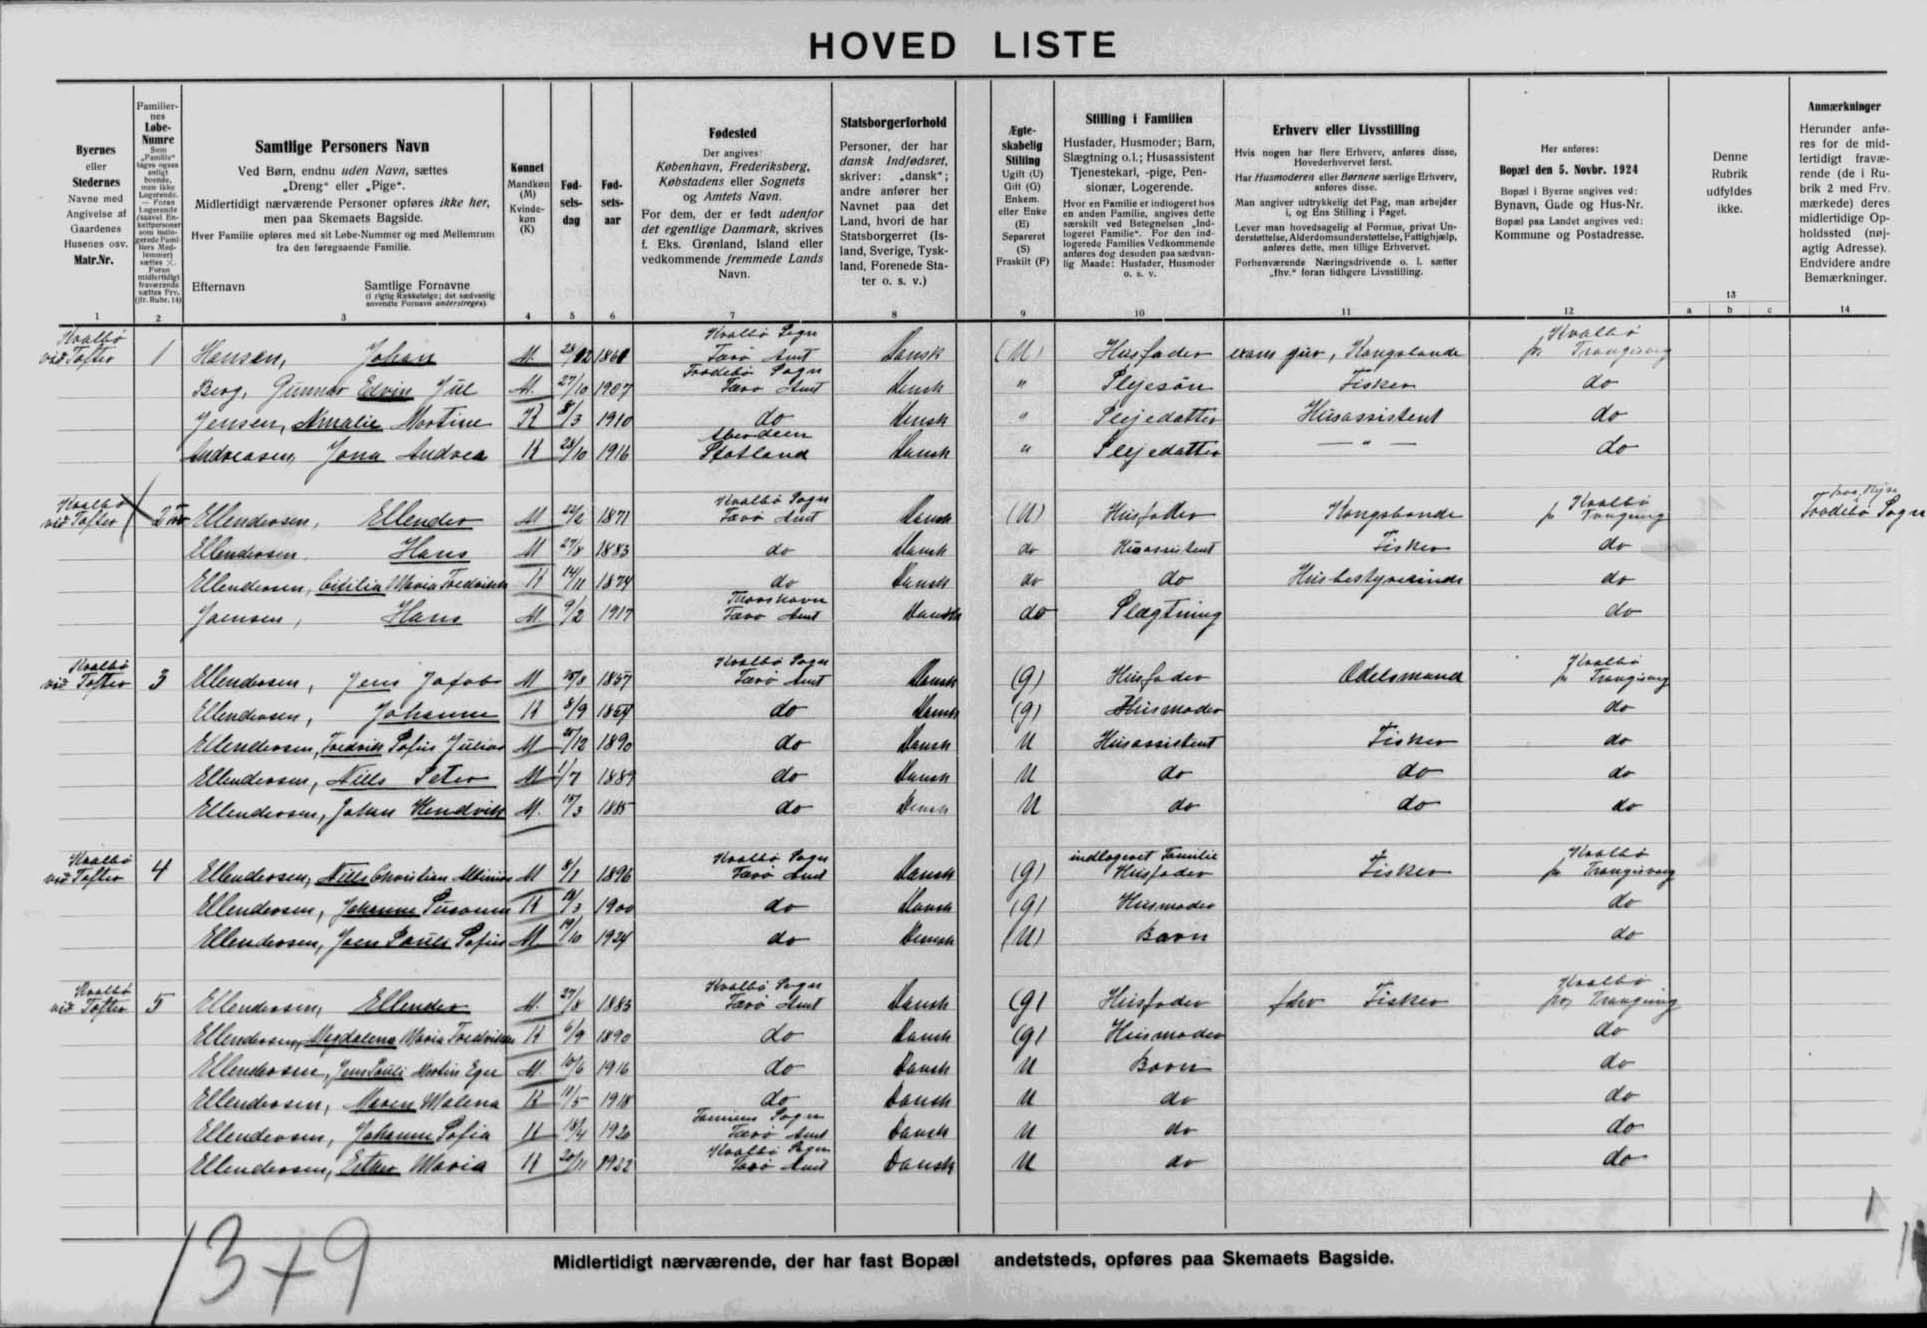 HOVED LISTE
Byernes
eller
Stedernes
Navne med
Angivelse af
Gaardenes
Husenes osv.
Matr.Nr.
Familier-
nes
Løbe-
Numre
Samtlige Personers Navn
Ved Børn, endnu uden Navn, sættes
„Dreng“ eller „Pige“.
Midlertidigt nærværende Personer opføres ikke her,
men paa Skemaets Bagside.
Hver Familie opføres med sit Løbe-Nummer og med Mellemrum
fra den foregaaende Familie.
Efternavn Samtlige Fornavne
(i rigtig Rækkefølge; det sædvanlig
anvendte Fornavn understreges).
Kønnet
Mandkøn
(M)
Kvinde-
køn
(K)
Fød-
sels-
dag
Fød-
sels-
aar
Fødested
Der angives:
København, Frederiksberg,
Købstadens eller Sognets
og Amtets Navn.
For dem, der er født udenfor
det egentlige Danmark, skrives
f. Eks. Grønland, Island eller
vedkommende fremmede Lands
Navn.
Statsborgerforhold
Personer, der har
dansk Indfødsret,
skriver: „dansk“;
andre anfører her
Navnet paa det
Land, hvori de har
Statsborgerret (Is-
land, Sverige, Tysk-
land, Forenede Sta-
ter o. s. v.)
Ægte-
skabelig
Stilling
Ugift (U)
Gift (G)
Enkem.
eller Enke
(E)
Separeret
(S)
Fraskilt (F)
Stilling i Familien
Husfader, Husmoder; Barn,
Slægtning o.l.; Husassistent
Tjenestekarl, -pige, Pen-
sionær, Logerende.
Hvor en Familie er indlogeret hos
en anden Familie, angives dette
særskilt ved Betegnelsen „Ind-
logeret Familie“. For den ind-
logerede Families Vedkommende
anføres dog desuden paa sædvan-
lig Maade: Husfader, Husmoder
o. s. v.
Erhverv eller Livsstilling
Hvis nogen har flere Erhverv, anføres disse,
Hovederhvervet først.
Har Husmoderen eller Børnene særlige Erhverv,
anføres disse.
Man angiver udtrykkelig det Fag, man arbejder
i, og Ens Stilling i Faget.
Lever man hovedsagelig af Formue, privat Un-
derstøttelse, Alderdomsunderstøttelse, Fattighjælp,
anføres dette, men tillige Erhvervet.
Forhenværende Næringsdrivende o. l. sætter
„fhv.“ foran tidligere Livsstilling.
Her anføres:
Bopæl den 5. Novbr. 1924
Bopæl i Byerne angives ved:
Bynavn, Gade og Hus-Nr.
Bopæl paa Landet angives ved:
Kommune og Postadresse.
Denne
Rubrik
udfyldes
ikke.
Anmærkninger
Herunder anfø-
res for de mid-
lertidigt fravæ-
rende (de i Ru-
brik 2 med Frv.
mærkede) deres
midlertidige Op-
holdssted (nøj-
agtig Adresse).
Endvidere andre
Bemærkninger.
1 2 3 4 5 6 7 8 9 10 11 12 13 a b c 14
Kvalbø Kvalbø Sogn Kvalbø
vid Tofter 1 Hansen, Johan M. 1860 Færø Amt Dansk (U) Husfader Kongsbonde Trangisvaag
Frodebø Sogn
Berg, Gunnar Edvin Jul M. 27/10 1907 Færø Amt Dansk " Plejesøn Fisker do
Jensen, Amalie Martine K 8/3 1910 do Dansk " Plejedatter Husassistent do
Aberdeen
Andreasen, Jona Andrea K 28/10 1916 Skotland Dansk " Plejedatter — " — do
Kvalbø Kvalbø Sogn Kvalbø
vid Tofter 2 Ellendersen, Ellender M 1871 Færø Amt Dansk (U) Husfader Kongsbonde Frodebø Sogn
Ellendersen Hans M 27/8 1883 do Dansk do Husassistent Fisker do
Ellendersen, Maria K 14/11 1874 do Dansk do do Husbestyrerinde do
Thorshavn
Joensen, Hans M 9/2 1917 Færø Amt Dansk do Slægtning do
Kvalbø Kvalbø Sogn Kvalbø
vid Tofter 3 Ellendersen, Jens Jafob M 1857 Færø Amt Dansk (g) Husfader Odelsmand Trangisvaag
Ellendersen, Johanne K 8/9 do Dansk (g) Husmoder do
Ellendersen, Fredrik Sofus Julius M 1890 do Dansk U Husassistent Fisker do
Ellendersen, Niels Peter M 1/7 1889 do Dansk U do do do
Ellendersen, Johan Hendrik M. 1885 do Dansk U do do do
Kvalbø Kvalbø Sogn indlogeret Familie Kvalbø
vid Tofter 4 Ellendersen, Niels Christian M 8/1 1896 Færø Amt Dansk (g) Husfader Fisker Trangisvaag
Ellendersen, Johanne Susanne K 1900 do Dansk (g) Husmoder do
Ellendersen, Joen Pauli Sofus M 19/10 1924 do Dansk (U) Barn do
Kvalbø Kvalbø Sogn Kvalbø
vid Tofter 5 Ellendersen, Ellender M. 27/8 1883 Færø Amt Dansk (g) Husfader fhv Fisker
Ellendersen, Magdalena Maria K 6/9 1890 do Dansk (g) Husmoder do
Ellendersen, Jens Pauli M 10/6 1916 do Dansk U Barn do
Ellendersen, Maren Malena K 11/5 1918 do Dansk U do do
Sogn
Ellendersen, Johanne Sofia K 1920 Færø Amt Dansk U do do
Kvalbø Sogn
Ellendersen, Ester Maria K 20/11 1922 Færø Amt Dansk U do do
13+9
Midlertidigt nærværende, der har fast Bopæl andetsteds, opføres paa Skemaets Bagside.